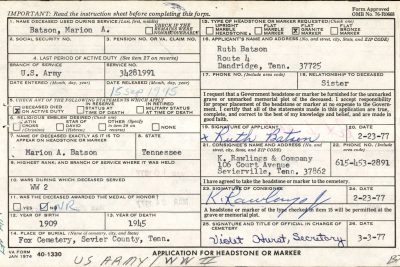 IMPORTANT: Read the instruction sheet before completing this form.
Form Approved
OMB No. 76-R0668
1. NAME DECEASED USED DURING SERVICE (Last, first, middle)
Batson, Marion A.
2. SOCIAL SECURITY NO.
3. PENSION NO. OR VA. CLAIM NO.
4. LAST PERIOD OF ACTIVE DUTY (See item 27 on reverse)
BRANCH OF SERVICE
SERVICE NO.
U.S. Army
34281991
DATE ENTERED (Month, day, year)
DATE SEPARATED (Month, day, year)
15 Sep 1945
5. CHECK ANY OF THE FOLLOWING STATEMENTS WHICH APPLY
DECEASED DIED ON ACTIVE DUTY
IN RETIRED STATUS AT TIME OF DEATH
MILITARY STATUS AT TIME OF DEATH
6. RELIGIOUS EMBLEM DESIRED
LATIN CROSS
STAR OF DAVID
NONE
7. NAME OF DECEASED EXACTLY AS IT IS TO APPEAR ON HEADSTONE OR MARKER
8. STATE
Marion A. Batson
Tennessee
9. HIGHEST RANK AND BRANCH OF SERVICE WHERE IT WAS HELD
10. WARS DURING WHICH DECEASED SERVED
WW 2
11. WAS THE DECEASED AWARDED THE MEDAL OF HONOR?
YES
NO
NR
12. YEAR OF BIRTH
13. YEAR OF DEATH
1909
1945
14. PLACE OF BURIAL (Name of cemetery, city, and State)
Fox Cemetery, Sevier County, Tenn.
15. TYPE OF HEADSTONE OR MARKER REQUESTED (Check one)
UPRIGHT MARBLE
FLAT MARBLE
FLAT GRANITE MARKER
FLAT BRONZE MARKER
16. APPLICANT'S NAME AND ADDRESS (No. and street, city, State, and ZIP CODE)
Ruth Batson
Route 4
Dandridge, Tenn. 37725
17. PHONE NO. (Include area code)
18. RELATIONSHIP TO DECEASED
Sister
I request that a Government headstone or marker be furnished for the unmarked grave or unmarked memorial plot of the deceased. I accept responsibility for proper placement of the headstone or marker at no expense to the Government. I certify that all of the statements made in this application are true, complete, and correct to the best of my knowledge and belief, and are made in good faith.
19. SIGNATURE OF APPLICANT
20. DATE
x Ruth Batson
2-23-77
21. CONSIGNEE'S NAME AND ADDRESS (No. and street, city, State and ZIP CODE)
22. PHONE NO. (Include area code)
R. Rawlings & Company
106 Court Avenue
Sevierville, Tenn. 37862
615-453-2891
I have agreed to take the headstone or marker to the cemetery.
23. SIGNATURE OF CONSIGNEE
24. DATE
R. Rawlings
2-23-77
The type of headstone or marker checked in item 15 will be permitted at the grave or memorial plot.
26. DATE
Violet Hurst, Secretary
3-3-77
VA FORM JAN 1974 40-1330
APPLICATION FOR HEADSTONE OR MARKER
US ARMY WW II